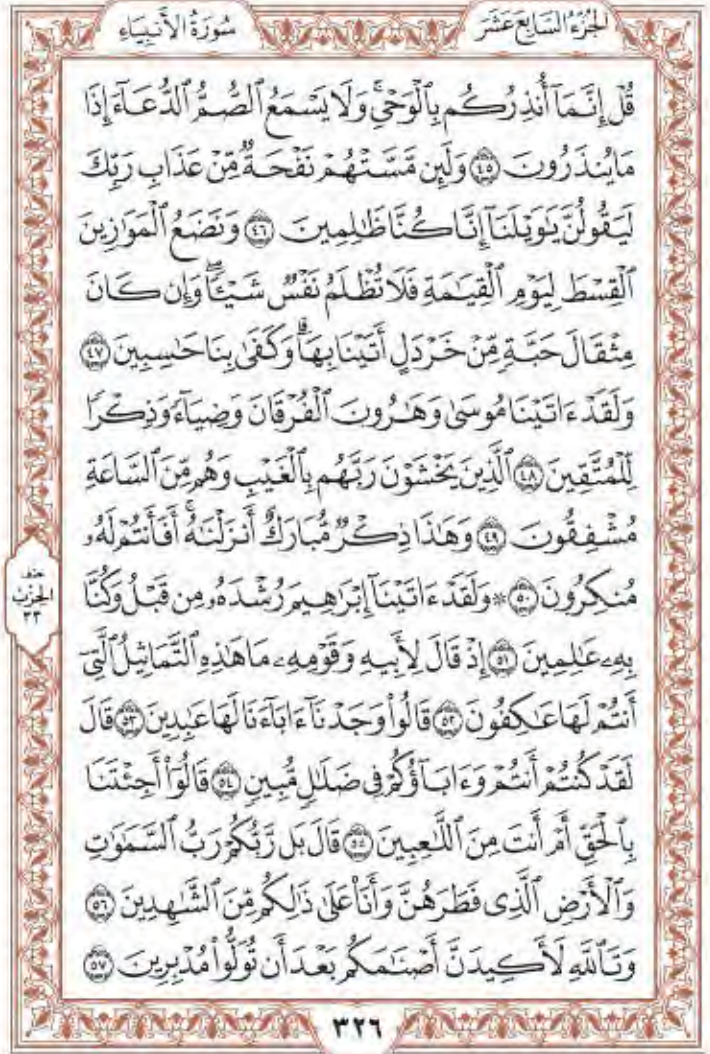 الجُزْءُ السَّابِعَ عَشَرَ
سُورَةُ الأَنبِيَاءِ
قُلْ إِنَّمَآ أُنذِرُكُم بِٱلْوَحْىِۚ وَلَا يَسْمَعُ ٱلصُّمُّ ٱلدُّعَآءَ إِذَا
مَا يُنذَرُونَ ٤٥ وَلَئِن مَّسَّتْهُمْ نَفْحَةٌ مِّنْ عَذَابِ رَبِّكَ
لَيَقُولُنَّ يَٰوَيْلَنَآ إِنَّا كُنَّا ظَٰلِمِينَ ٤٦ وَنَضَعُ ٱلْمَوَٰزِينَ
ٱلْقِسْطَ لِيَوْمِ ٱلْقِيَٰمَةِ فَلَا تُظْلَمُ نَفْسٌ شَيْـًٔاۖ وَإِن كَانَ
مِثْقَالَ حَبَّةٍ مِّنْ خَرْدَلٍ أَتَيْنَا بِهَاۗ وَكَفَىٰ بِنَا حَٰسِبِينَ ٤٧
وَلَقَدْ ءَاتَيْنَا مُوسَىٰ وَهَٰرُونَ ٱلْفُرْقَانَ وَضِيَآءً وَذِكْرًا
لِّلْمُتَّقِينَ ٤٨ ٱلَّذِينَ يَخْشَوْنَ رَبَّهُم بِٱلْغَيْبِ وَهُم مِّنَ ٱلسَّاعَةِ
مُشْفِقُونَ ٤٩ وَهَٰذَا ذِكْرٌ مُّبَارَكٌ أَنزَلْنَٰهُۚ أَفَأَنتُمْ لَهُۥ
مُنكِرُونَ ٥٠ ۞ وَلَقَدْ ءَاتَيْنَآ إِبْرَٰهِيمَ رُشْدَهُۥ مِن قَبْلُ وَكُنَّا
بِهِۦ عَٰلِمِينَ ٥١ إِذْ قَالَ لِأَبِيهِ وَقَوْمِهِۦ مَا هَٰذِهِ ٱلتَّمَاثِيلُ ٱلَّتِىٓ
أَنتُمْ لَهَا عَٰكِفُونَ ٥٢ قَالُوا۟ وَجَدْنَآ ءَابَآءَنَا لَهَا عَٰبِدِينَ ٥٣ قَالَ
لَقَدْ كُنتُمْ أَنتُمْ وَءَابَآؤُكُمْ فِى ضَلَٰلٍ مُّبِينٍ ٥٤ قَالُوٓا۟ أَجِئْتَنَا
بِٱلْحَقِّ أَمْ أَنتَ مِنَ ٱللَّٰعِبِينَ ٥٥ قَالَ بَل رَّبُّكُمْ رَبُّ ٱلسَّمَٰوَٰتِ
وَٱلْأَرْضِ ٱلَّذِى فَطَرَهُنَّ وَأَنَا۠ عَلَىٰ ذَٰلِكُم مِّنَ ٱلشَّٰهِدِينَ ٥٦
وَتَٱللَّهِ لَأَكِيدَنَّ أَصْنَٰمَكُم بَعْدَ أَن تُوَلُّوا۟ مُدْبِرِينَ ٥٧
نصف
الحِزْبُ
٣٣
٣٢٦